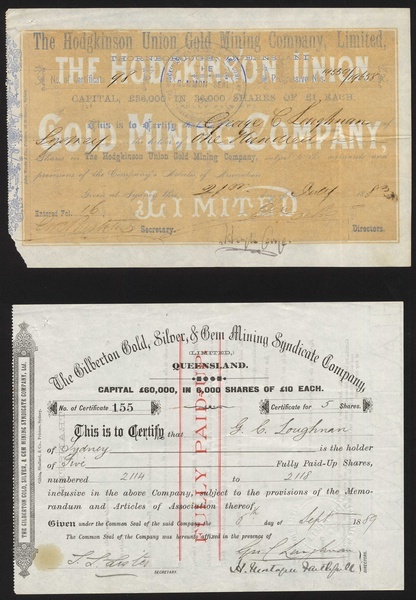 The Hodgkinson Union Gold Mining Company, Limited,
THE HODGKINSON UNION
Certificate 98
CAPITAL, IN SHARES OF £1 EACH.
GOLD MINING COMPANY,
This is to Certify George C. Loughnan
Sydney One Hundred
Shares in The Hodgkinson Union Gold Mining Company, subject to the
provisions of the Company's Articles of Association
LIMITED
Given at Sydney this 21st July 188
Entered Fol. 16
Secretary. Directors.
The Gilberton Gold, Silver, & Gem Mining Syndicate Company,
(LIMITED,)
QUEENSLAND.
CAPITAL £60,000, IN 6,000 SHARES OF £10 EACH.
No. of Certificate 155 Certificate for 5 Shares.
This is to Certify that G. C. Loughnan
of Sydney is the holder
of Five Fully Paid-Up Shares,
numbered 2114 to 2118
inclusive in the above Company, subject to the provisions of the Memo-
randum and Articles of Association thereof.
Given under the Common Seal of the said Company the 6th day of Sept 1889
The Common Seal of the Company was hereunto affixed in the presence of
Geo C Loughnan
SECRETARY.
DIRECTORS.
FULLY PAID-UP
THE GILBERTON GOLD, SILVER, & GEM MINING SYNDICATE COMPANY, Ltd.